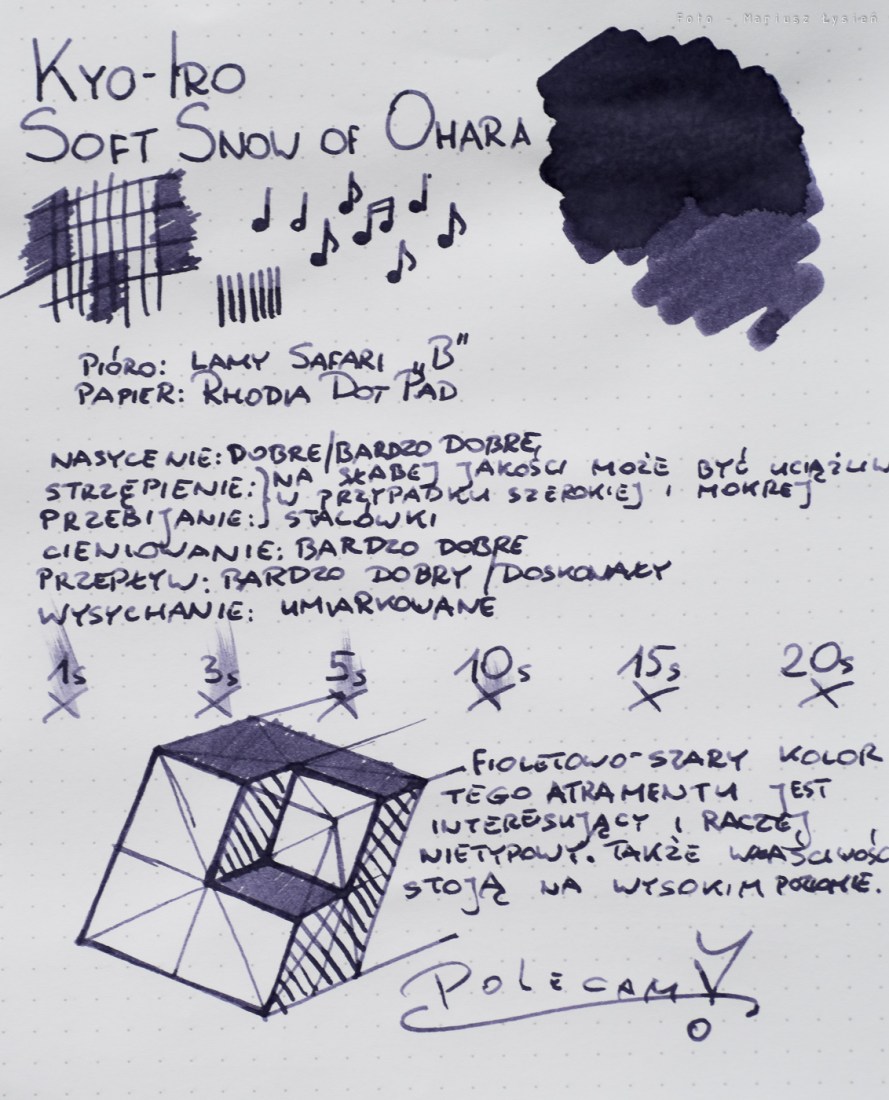 Foto - Mariusz Łysień
Kyo-Iro
Soft Snow of Ohara
Pióro: Lamy Safari „B"
Papier: Rhodia Dot Pad
Nasycenie: dobre/bardzo dobre,
Strzępienie: } na słabej jakości może być
Przebijanie: } w przypadku szerokiej i mokrej
stalówki
Cieniowanie: bardzo dobre
Przepływ: bardzo dobry/doskonały
Wysychanie: umiarkowane
1s 3s 5s 10s 15s 20s
Fioletowo-szary kolor
tego atramentu jest
interesujący i raczej
nietypowy. Także
stoją na wysokim poziomie.
Polecam!